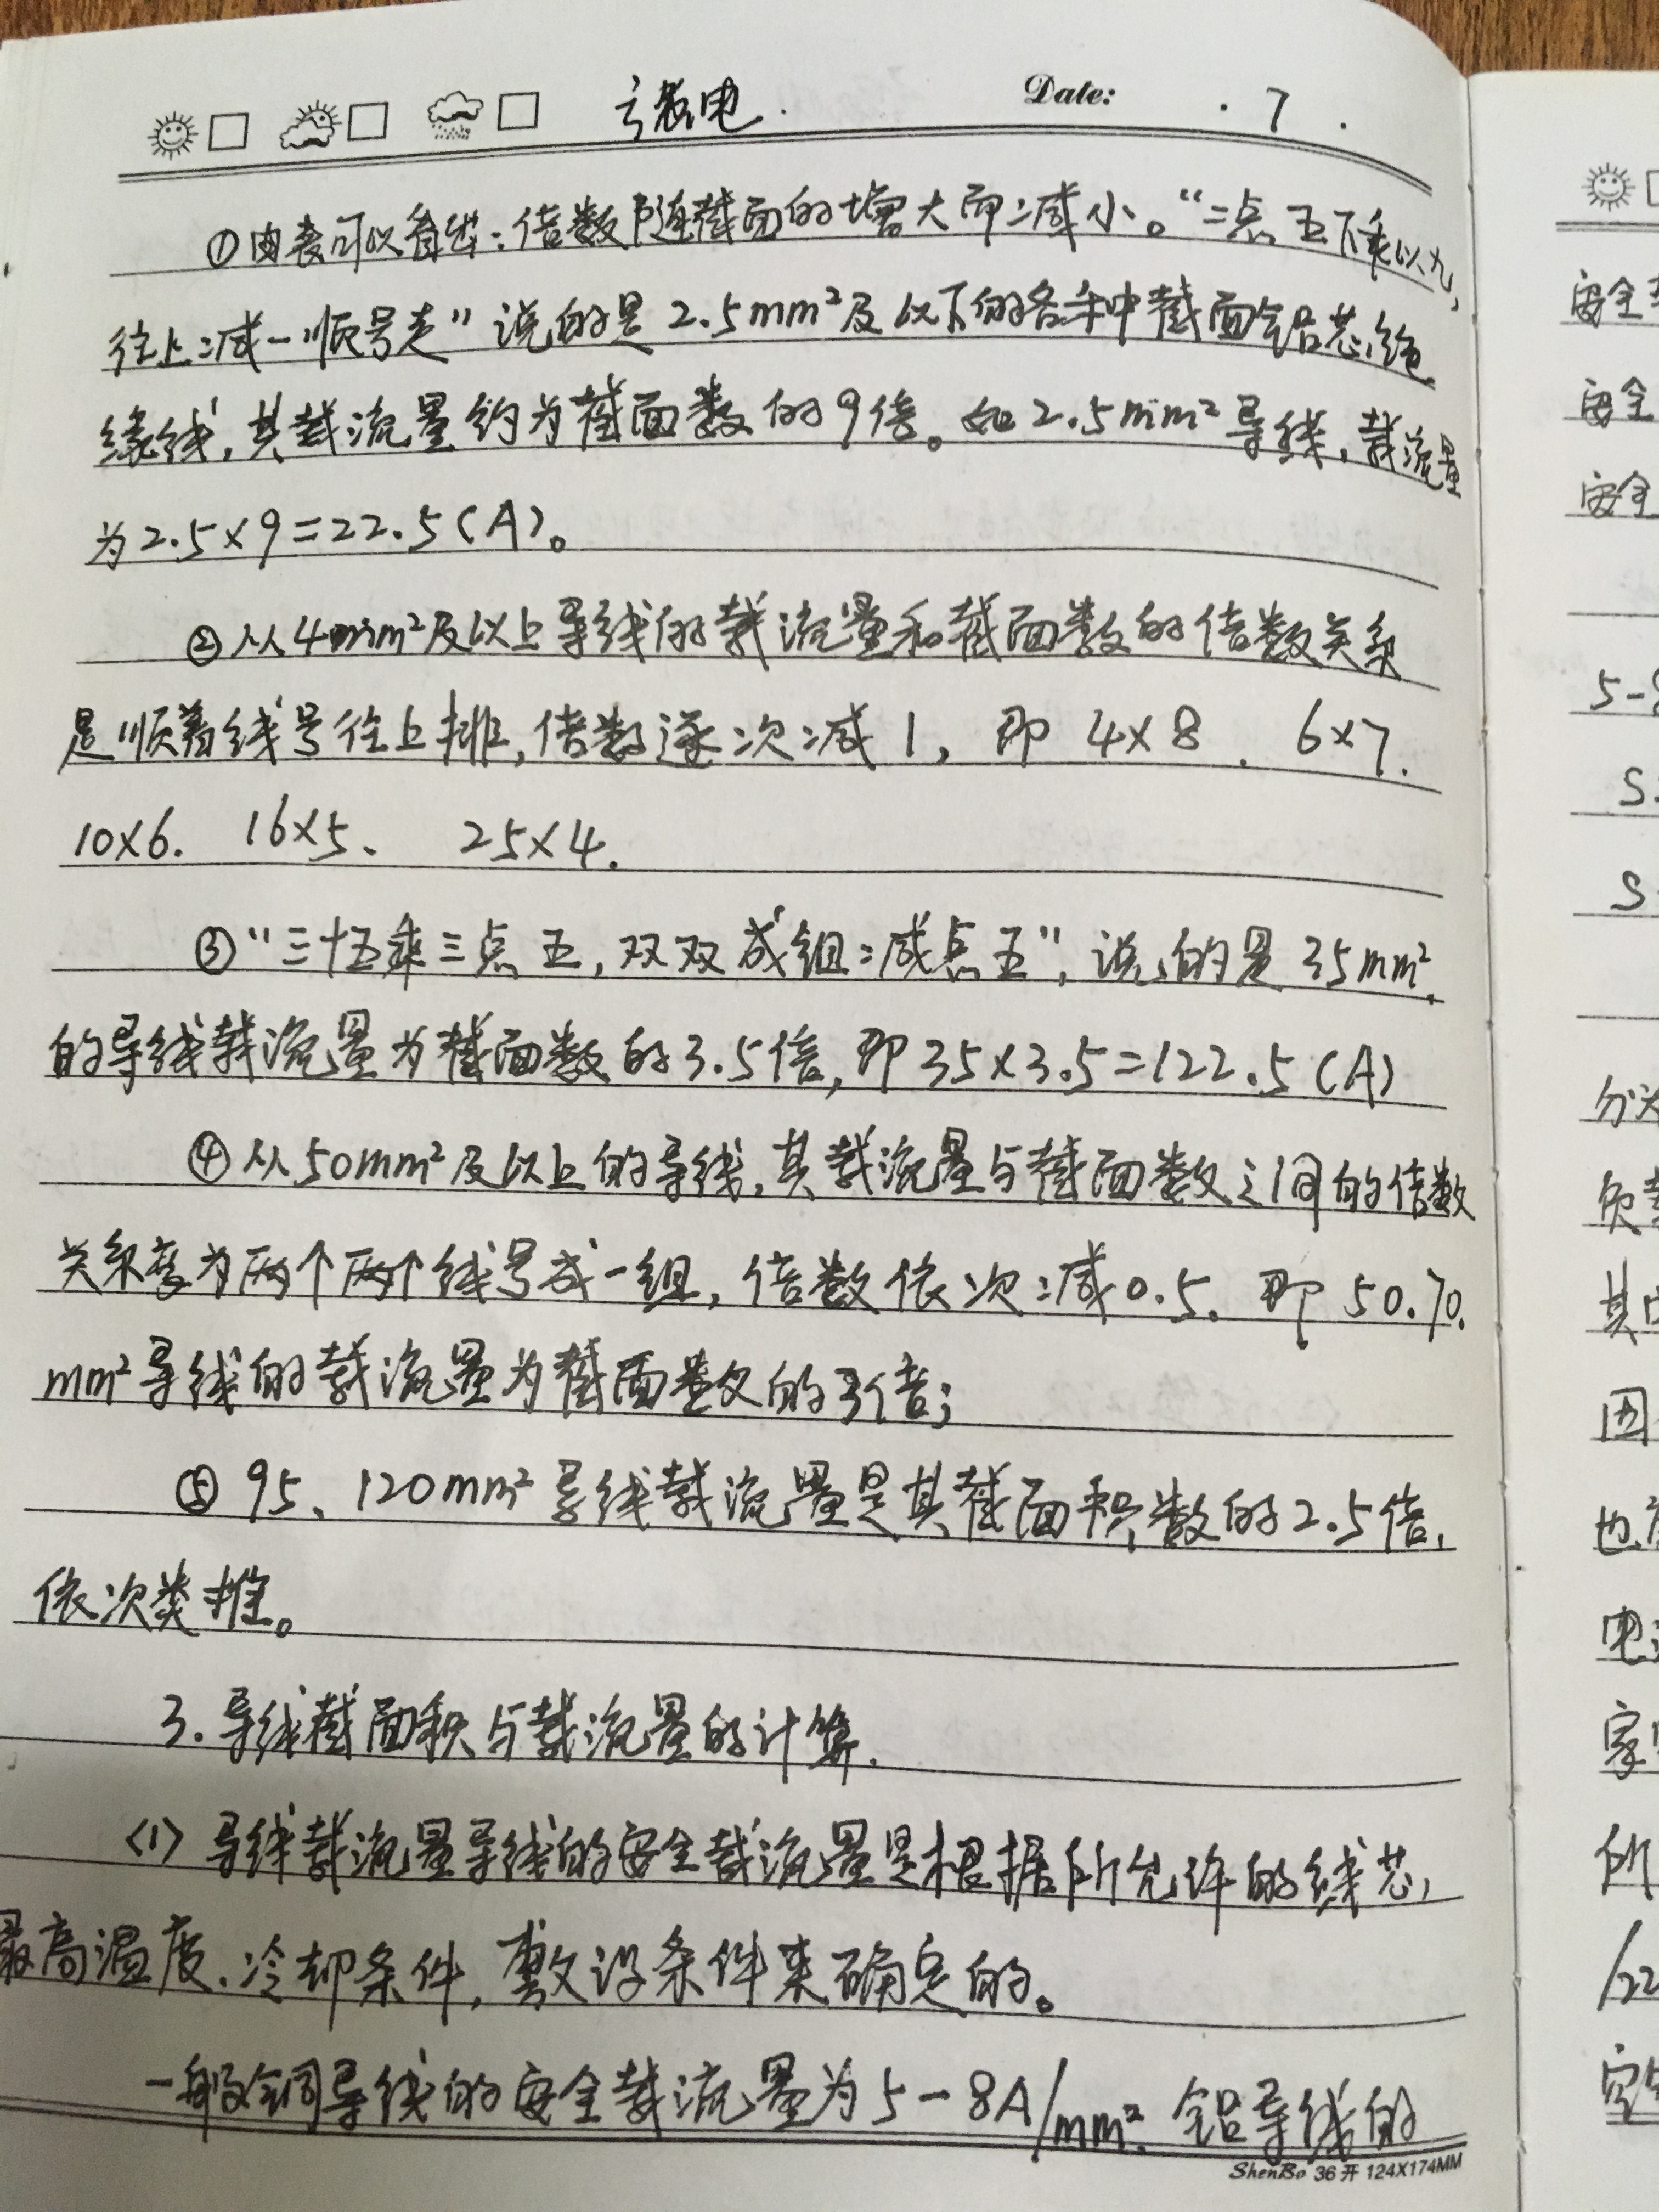 Date: . 7 .
①由表可以看出:倍数随截面的增大而减小。“二点五下乘以九,
往上减一顺号走”说的是2.5mm²及以下的各种截面铝芯绝
缘线,其载流量约为截面数的9倍。如2.5mm²导线,载流量
为2.5×9=22.5(A)。
②从4mm²及以上导线的载流量和截面数的倍数关系
是顺着线号往上排,倍数逐次减1,即 4×8、6×7.
10×6. 16×5、 25×4.
③“三十五乘三点五,双双成组减点五”,说的是35mm²
的导线载流量为截面数的3.5倍,即35×3.5=122.5(A)
④从50mm²及以上的导线,其载流量与截面数之间的倍数
关系变为两个两个线号成一组,倍数依次减0.5.即50.70.
mm²导线的载流量为截面数的3倍;
⑤95、120mm²导线载流量是其截面积数的2.5倍,
依次类推。
3.导线截面积与载流量的计算.
<1>导线载流量导线的安全载流量是根据所允许的线芯
最高温度.冷却条件,敷设条件来确定的。
一般铜导线的安全载流量为5-8A/mm².铝导线的
ShenBo 36开 124X174MM
安全
安全
安全
5-8
S
S
分为
负载
其中
因
也
电
家
所
/22